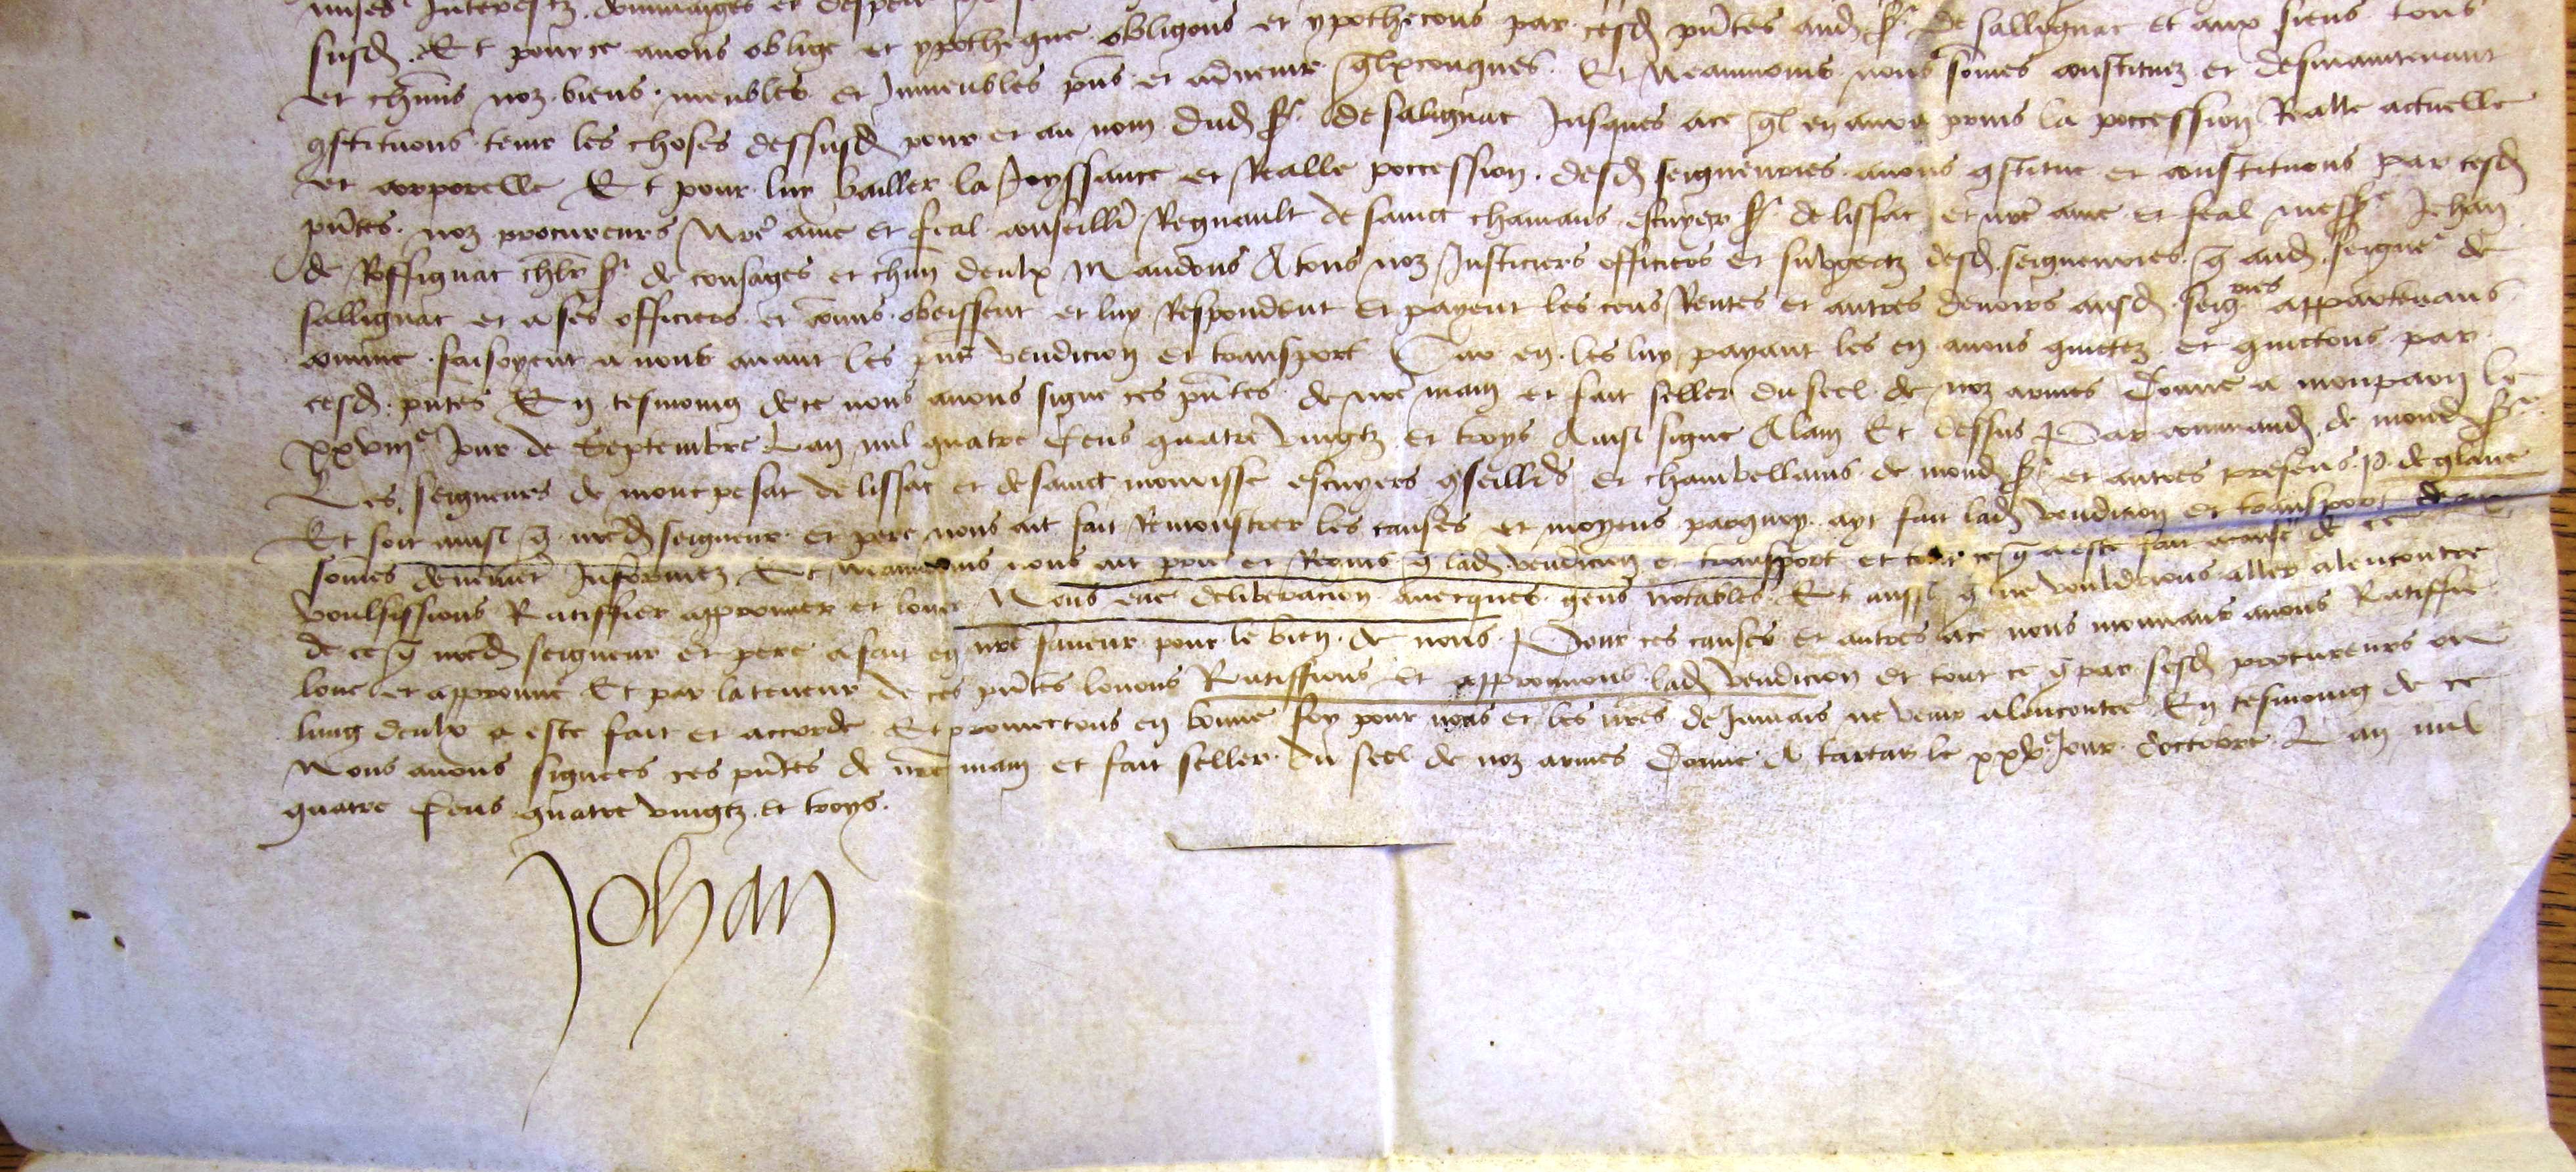 mises Interestz dommaiges et despens
susd Et pour ce avons oblige et ypotheque obligons et ypothecons par cesd pntes aud sr de sallignac et aux siens tous
et chuns noz biens meubles et Inmeubles pns et advenir qlxconques Et Neanmoins nous somes constituez et desmaintenant
qstituons tenir les choses dessusd pour et au nom dud sr de salignac Jusques ace ql en aura prins la poccession Realle actuelle
et corporelle Et pour luy bailler la Joyssance et Realle poccession desd seigneuries avons qstitue et constituons par cesd
pntes noz procureurs Nre ame et feal conseillr Regnault de sainct chamans escuyer sr de lissac et nre ame et feal messe Jehan
de Roffignac chlr sr de cousages et chun deulx Mandons A tous noz Justiciers officiers et subgectz desd seigneuries q aud seigner de
sallignac et a ses officiers et comis obeissent et luy Respondent et payent les cens Rentes et autres devoirs ausd seigries appartenans
comme faisoyent a nous avant les pntes vendicion et transport Car en les luy payant les en avons quictez et quictons par
cesd pntes En tesmoing de ce nous avons signe ces pntes de nre main et fait seller du seel de noz armes Donne a monpaon le
xxviiie Jour de Septembre Lan mil quatre cens quatre vingtz et troys Ainsi signe Alain Et dessus Par command de mond sr
Les seigneurs de montpesat de lissac et de sainct mourisse escuyers qseillrs et chambellains de mond sr et autres presens p. de glane
Et soit ainsi q nred seigneur et pere nous ait fait Remonstrer les causes et moyens parquoy ayt fait lad vendicion et transport de
somes devement Informez Et Neanmoins nous ait prie et Requis q lad vendicion et transport et tout ce q a este fait a cause de ce
voulsissions Ratiffier approuver et louer Nous eue deliberacion avecques gens notables Et aussi q ne vouldrions aller alencontre
de ce q nred seigneur et pere a fait en nre faveur pour le bien de nous Pour ces causes et autres ace nous mouvans avons Ratiffie
loue et approuve Et par la teneur de ces pntes louons Ratiffions et approuvons lad vendicion et tout ce q par sesd procureurs ou
lung deulx a este fait et accorde Et promectons en bonne foy pour nous et les nres de Jamais ne venir alencontre En tesmoing de ce
Nous avons signees ces pntes de nre main et fait seller du seel de noz armes Donne A tartas le xxve Jour doctobre Lan mil
quatre cens quatre vingtz et troys.
Johan